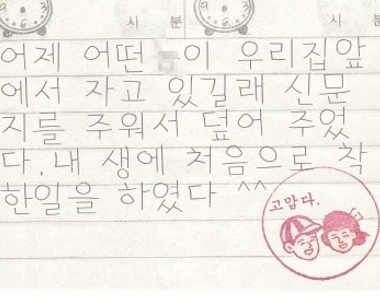 시 분 시 분
어제 어떤 이 우리집앞
에서 자고 있길래 신문
지를 주워서 덮어 주었
다. 내 생에 처음으로 착
한일을 하였다 ^^
고맙다.